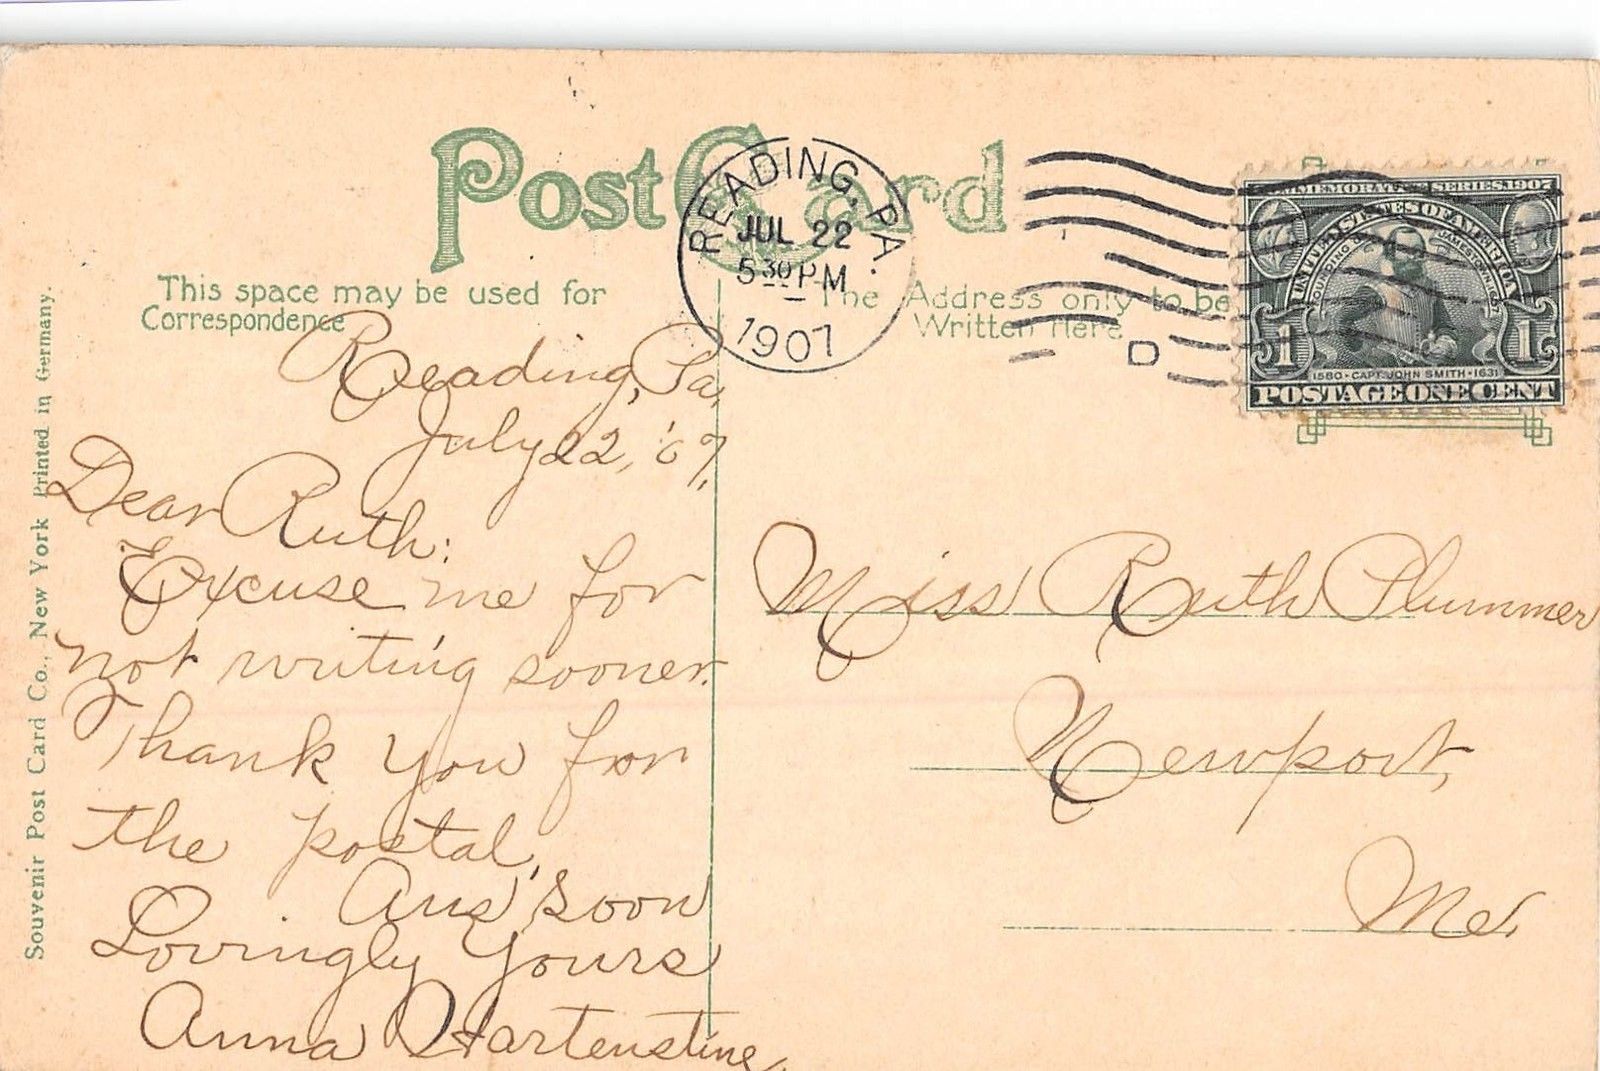 Post Card
This space may be used for
Correspondence
The Address only to be
Written Here
READING, PA.
JUL 22
5 30 PM
1907
D
COMMEMORATIVE SERIES 1907
UNITED STATES OF AMERICA
FOUNDING OF JAMESTOWN 1607
1 1
1580 · CAPT. JOHN SMITH · 1631
POSTAGE ONE CENT
Souvenir Post Card Co., New York Printed in Germany.
Reading, Pa,
July 22, '07,
Dear Ruth:
Excuse me for
not writing sooner.
Thank you for
the postal,
Ans, soon
Lovingly Yours
Anna Hartenstine,
Miss Ruth Plummer
Newport,
Me.